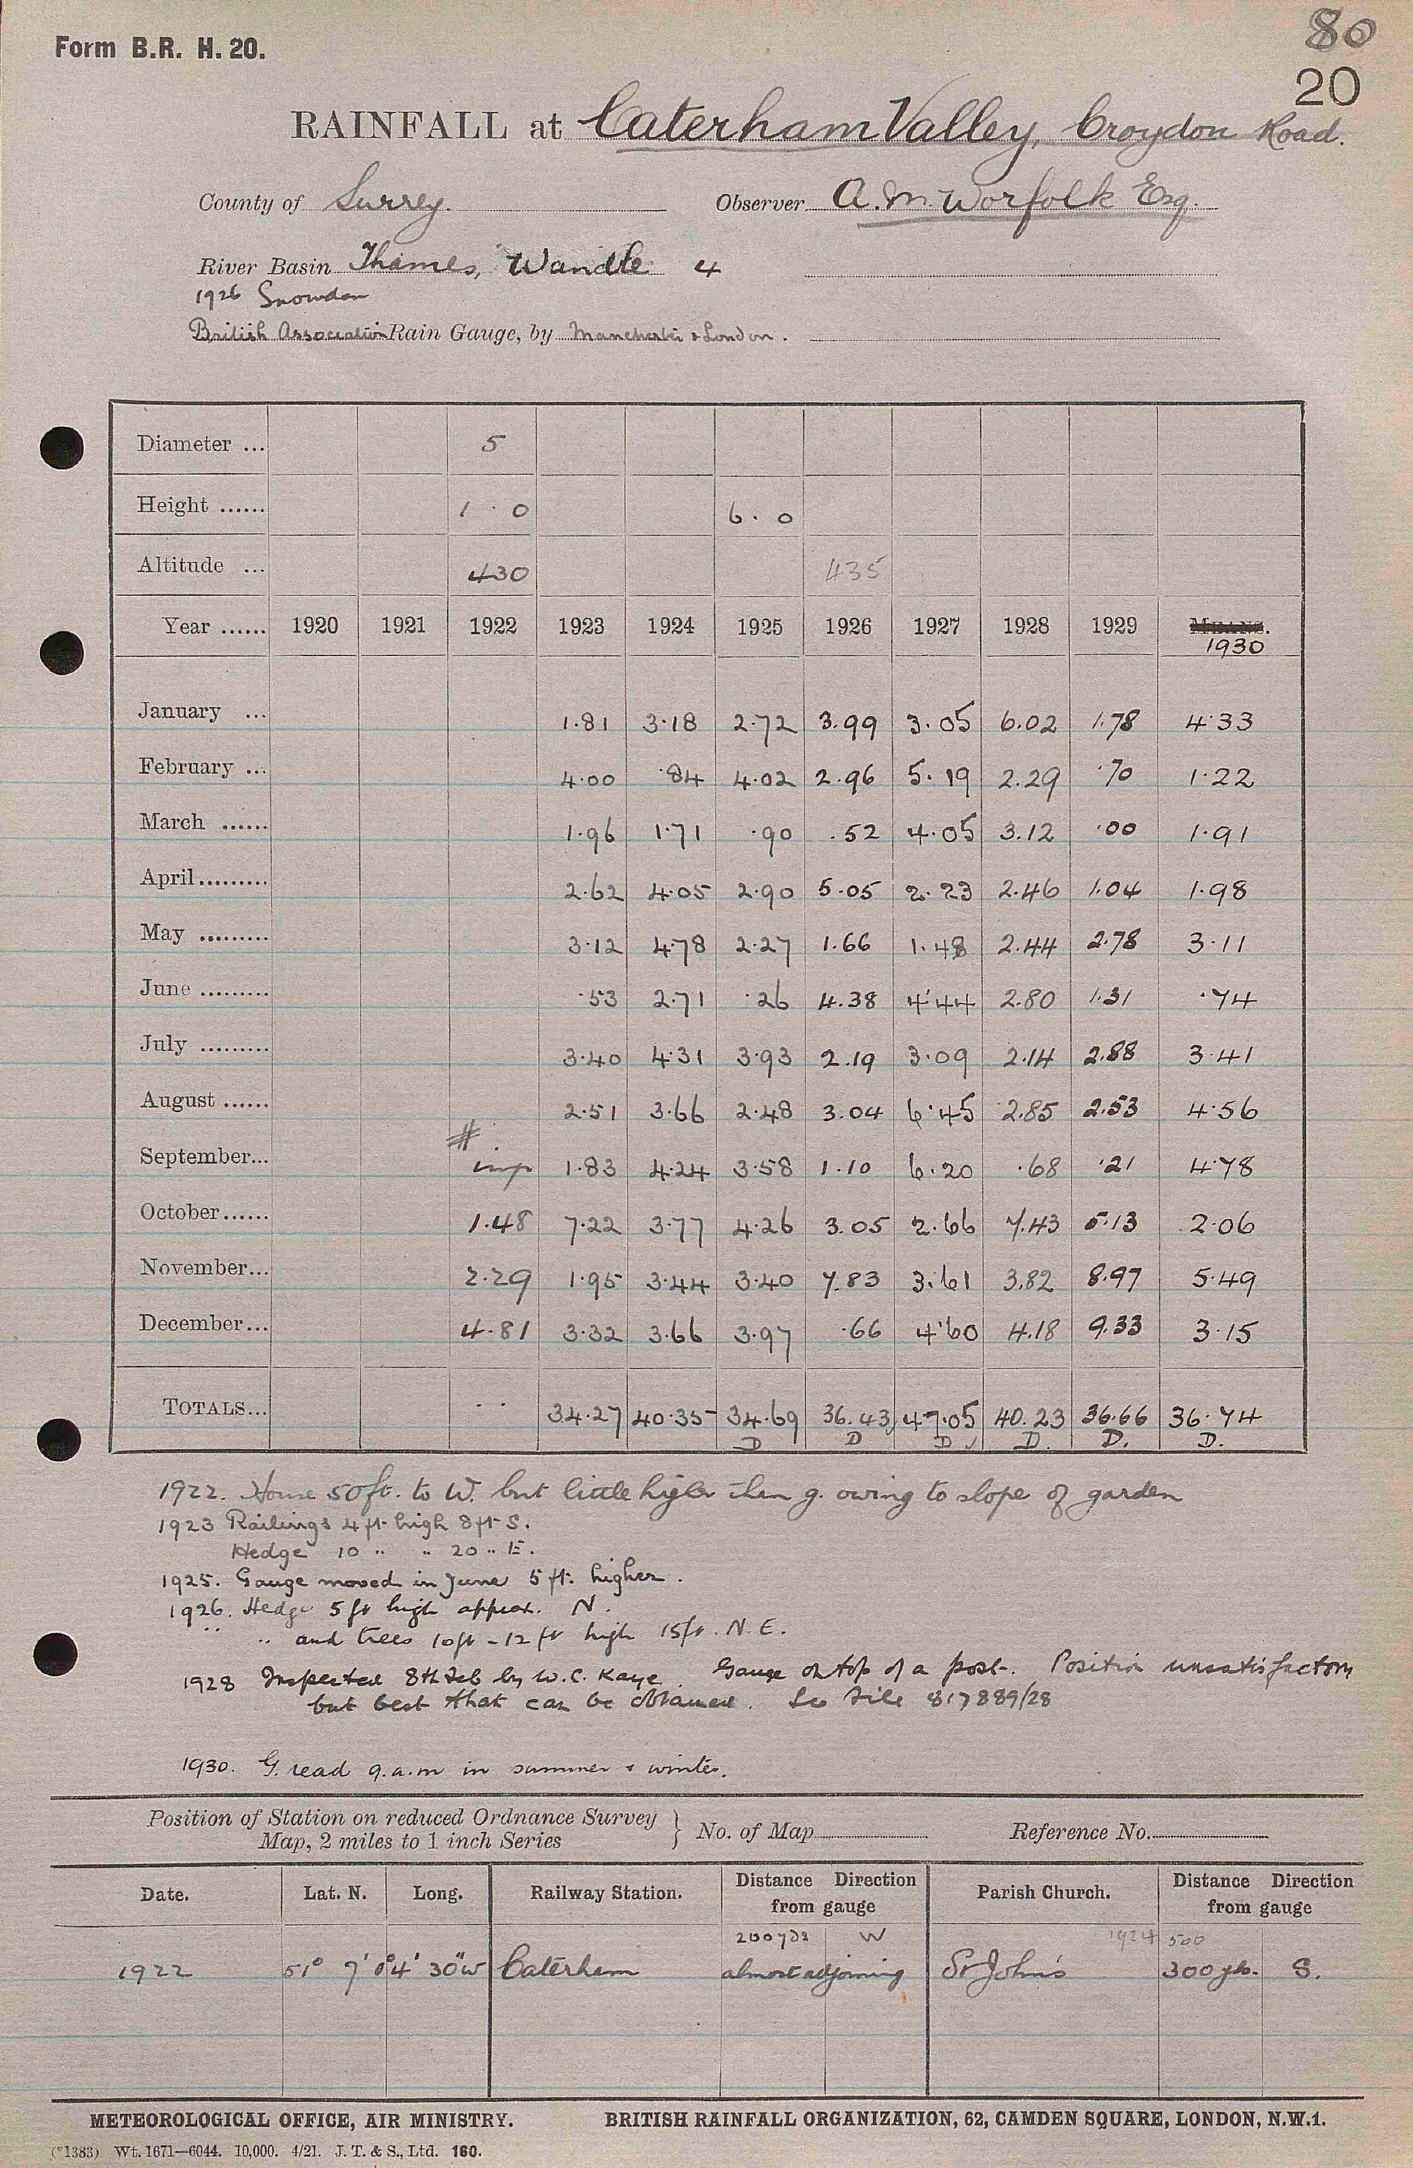 80
Form B.R. H. 20.
20
RAINFALL at Caterham Valley, Croydon Road.
County of Surrey. Observer A. M. Worfolk Esq.
River Basin Thames, Wandle 4
1926 Snowdon
British Association Rain Gauge, by Manchester & London.
Diameter ... 5
Height ...... 1 · 0 6 · 0
Altitude ... 430 435
Year ...... 1920 1921 1922 1923 1924 1925 1926 1927 1928 1929 MEANS.
1930
January ... 1·81 3·18 2·72 3.99 3.05 6.02 1.78 4·33
February ... 4·00 ·84 4·02 2·96 5.19 2.29 ·70 1·22
March ...... 1·96 1·71 ·90 .52 4·05 3.12 ·00 1·91
April......... 2·62 4·05 2·90 5·05 2·23 2·46 1·04 1·98
May ......... 3·12 4·78 2·27 1·66 1·48 2·44 2·78 3·11
June ......... ·53 2·71 ·26 4.38 4·44 2·80 1·31 ·74
July ......... 3·40 4·31 3·93 2·19 3·09 2·14 2·88 3·41
August ...... 2·51 3·66 2·48 3.04 6·45 2.85 2.53 4·56
September... # imp 1·83 4·24 3·58 1·10 6·20 ·68 ·21 4·78
October...... 1·48 7·22 3·77 4·26 3.05 2·66 7.43 5·13 2·06
November... 2·29 1·95 3·44 3·40 7.83 3·61 3.82 8·97 5·49
December... 4·81 3·32 3·66 3·97 ·66 4·60 4.18 9.33 3·15
TOTALS... . . 34·27 40·35 34·69 36.43 47·05 40.23 36·66 36·74
D D D D. D. D.
1922. House 50ft. to W. but little higher then g. owing to slope of garden
1923 Railings 4 ft high 8 ft S.
Hedge 10 " " 20 " E.
1925. Gauge moved in June 5 ft. higher.
1926. Hedge 5 ft high approx. N.
" " and trees 10ft - 12 ft high 15ft. N.E.
1928 Inspected 8th Feb by W. C. Kaye. Gauge on top of a post. Position unsatisfactory
but best that can be obtained. See File 817889/28
1930. G. read 9.a.m in summer & winter.
Position of Station on reduced Ordnance Survey
Map, 2 miles to 1 inch Series } No. of Map Reference No.
Date. Lat. N. Long. Railway Station. Distance Direction from gauge Parish Church. Distance Direction from gauge
200 yds W 1924 500
1922 51° 7' 0° 4' 30" W Caterham almost adjoining St John's 300 yds. S.
METEOROLOGICAL OFFICE, AIR MINISTRY. BRITISH RAINFALL ORGANIZATION, 62, CAMDEN SQUARE, LONDON, N.W.1.
(*1383) Wt. 1671—6044. 10,000. 4/21. J. T. & S., Ltd. 160.